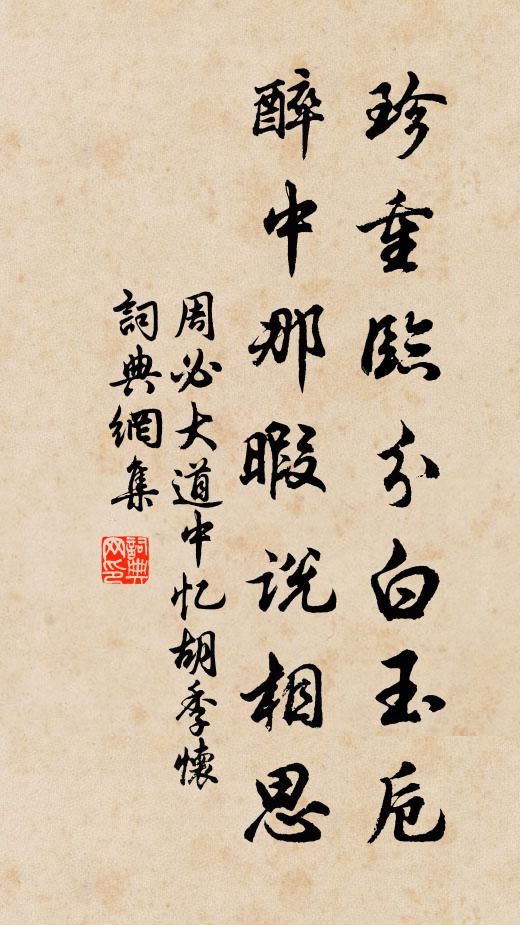 珍重臨分白玉卮
醉中那暇説相思
周必大道中忆胡季懷
詞典網集
詞典网印